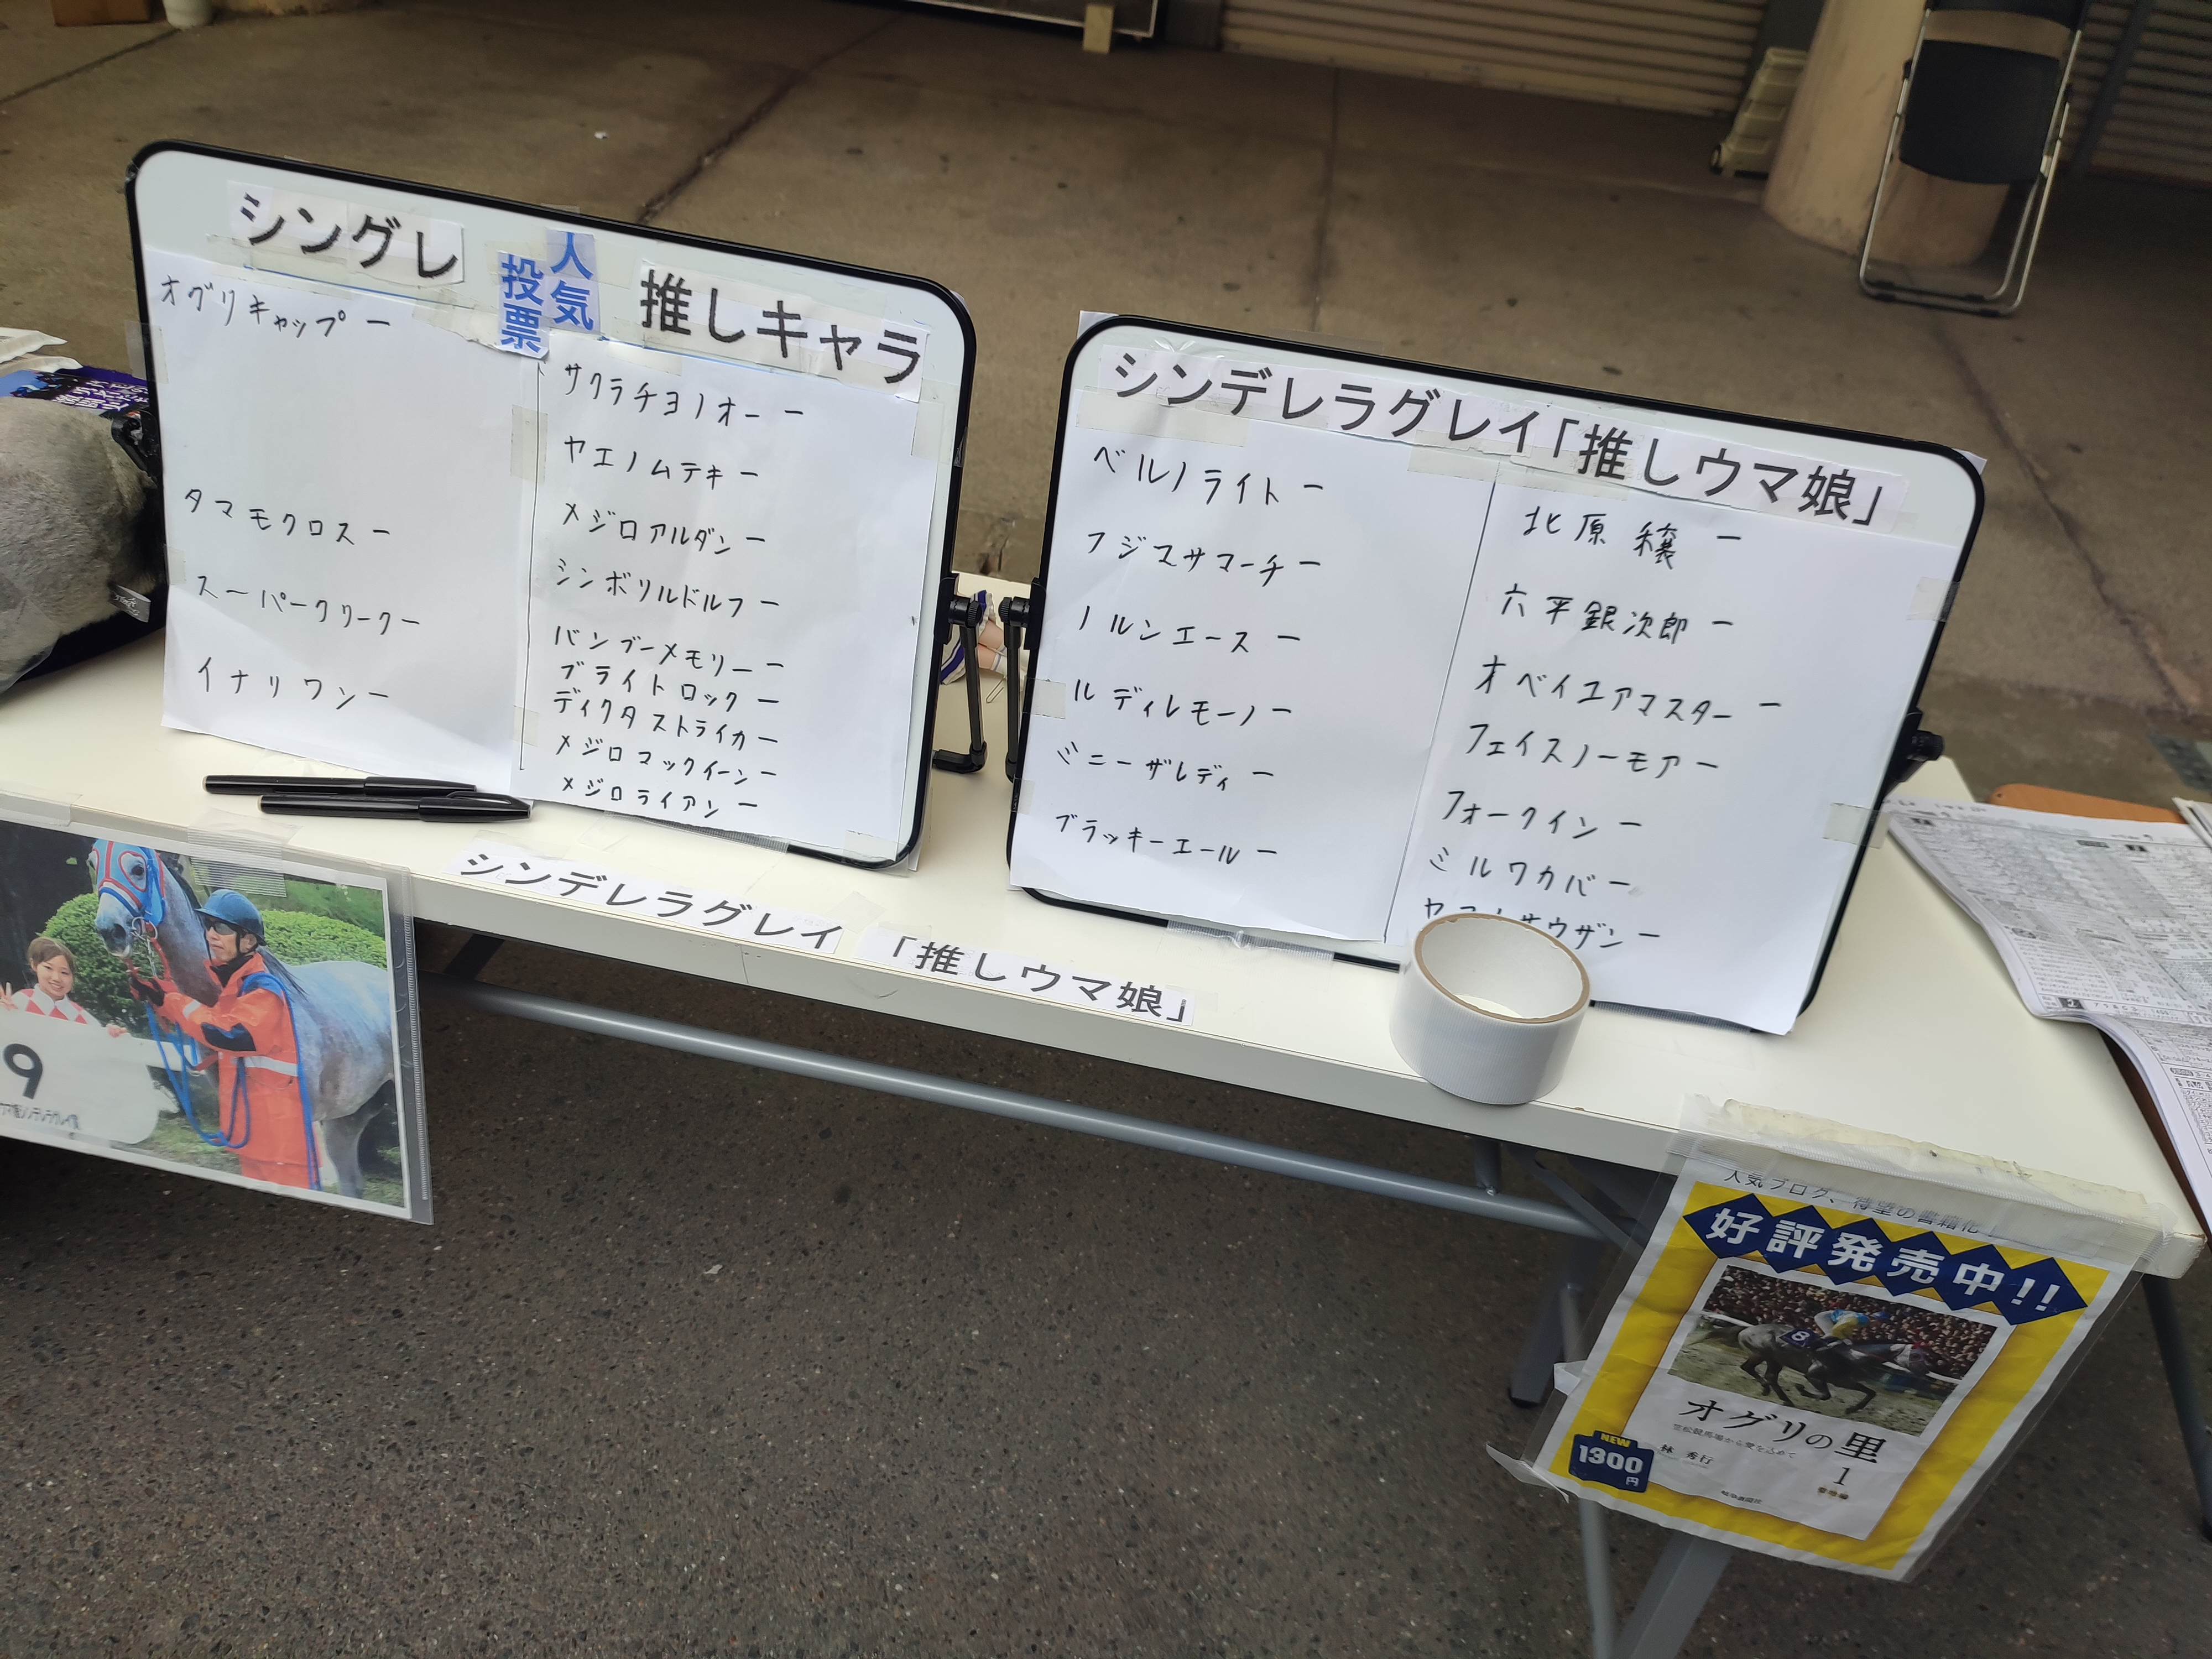 シングレ
人気
投票
推しキャラ
オグリキャップ ー
タマモクロス ー
スーパークリーク ー
イナリワン ー
サクラチヨノオー ー
ヤエノムテキ ー
メジロアルダン ー
シンボリルドルフ ー
バンブーメモリー ー
ブライトロック ー
ディクタストライカ ー
メジロマックイーン ー
メジロライアン ー
シンデレラグレイ「推しウマ娘」
ベルノライト ー
フジマサマーチ ー
ノルンエース ー
ルディレモーノ ー
ミニーザレディ ー
ブラッキーエール ー
北原 穣 ー
六平銀次郎 ー
オベイユアマスター ー
フェイスノーモア ー
フォークイン ー
ミルワカバ ー
サウザン ー
シンデレラグレイ 「推しウマ娘」
9
人気ブログ、待望の書籍化
好評発売中!!
8
オグリの里
笠松競馬場から愛を込めて
1
林 秀行
NEW
1300
円